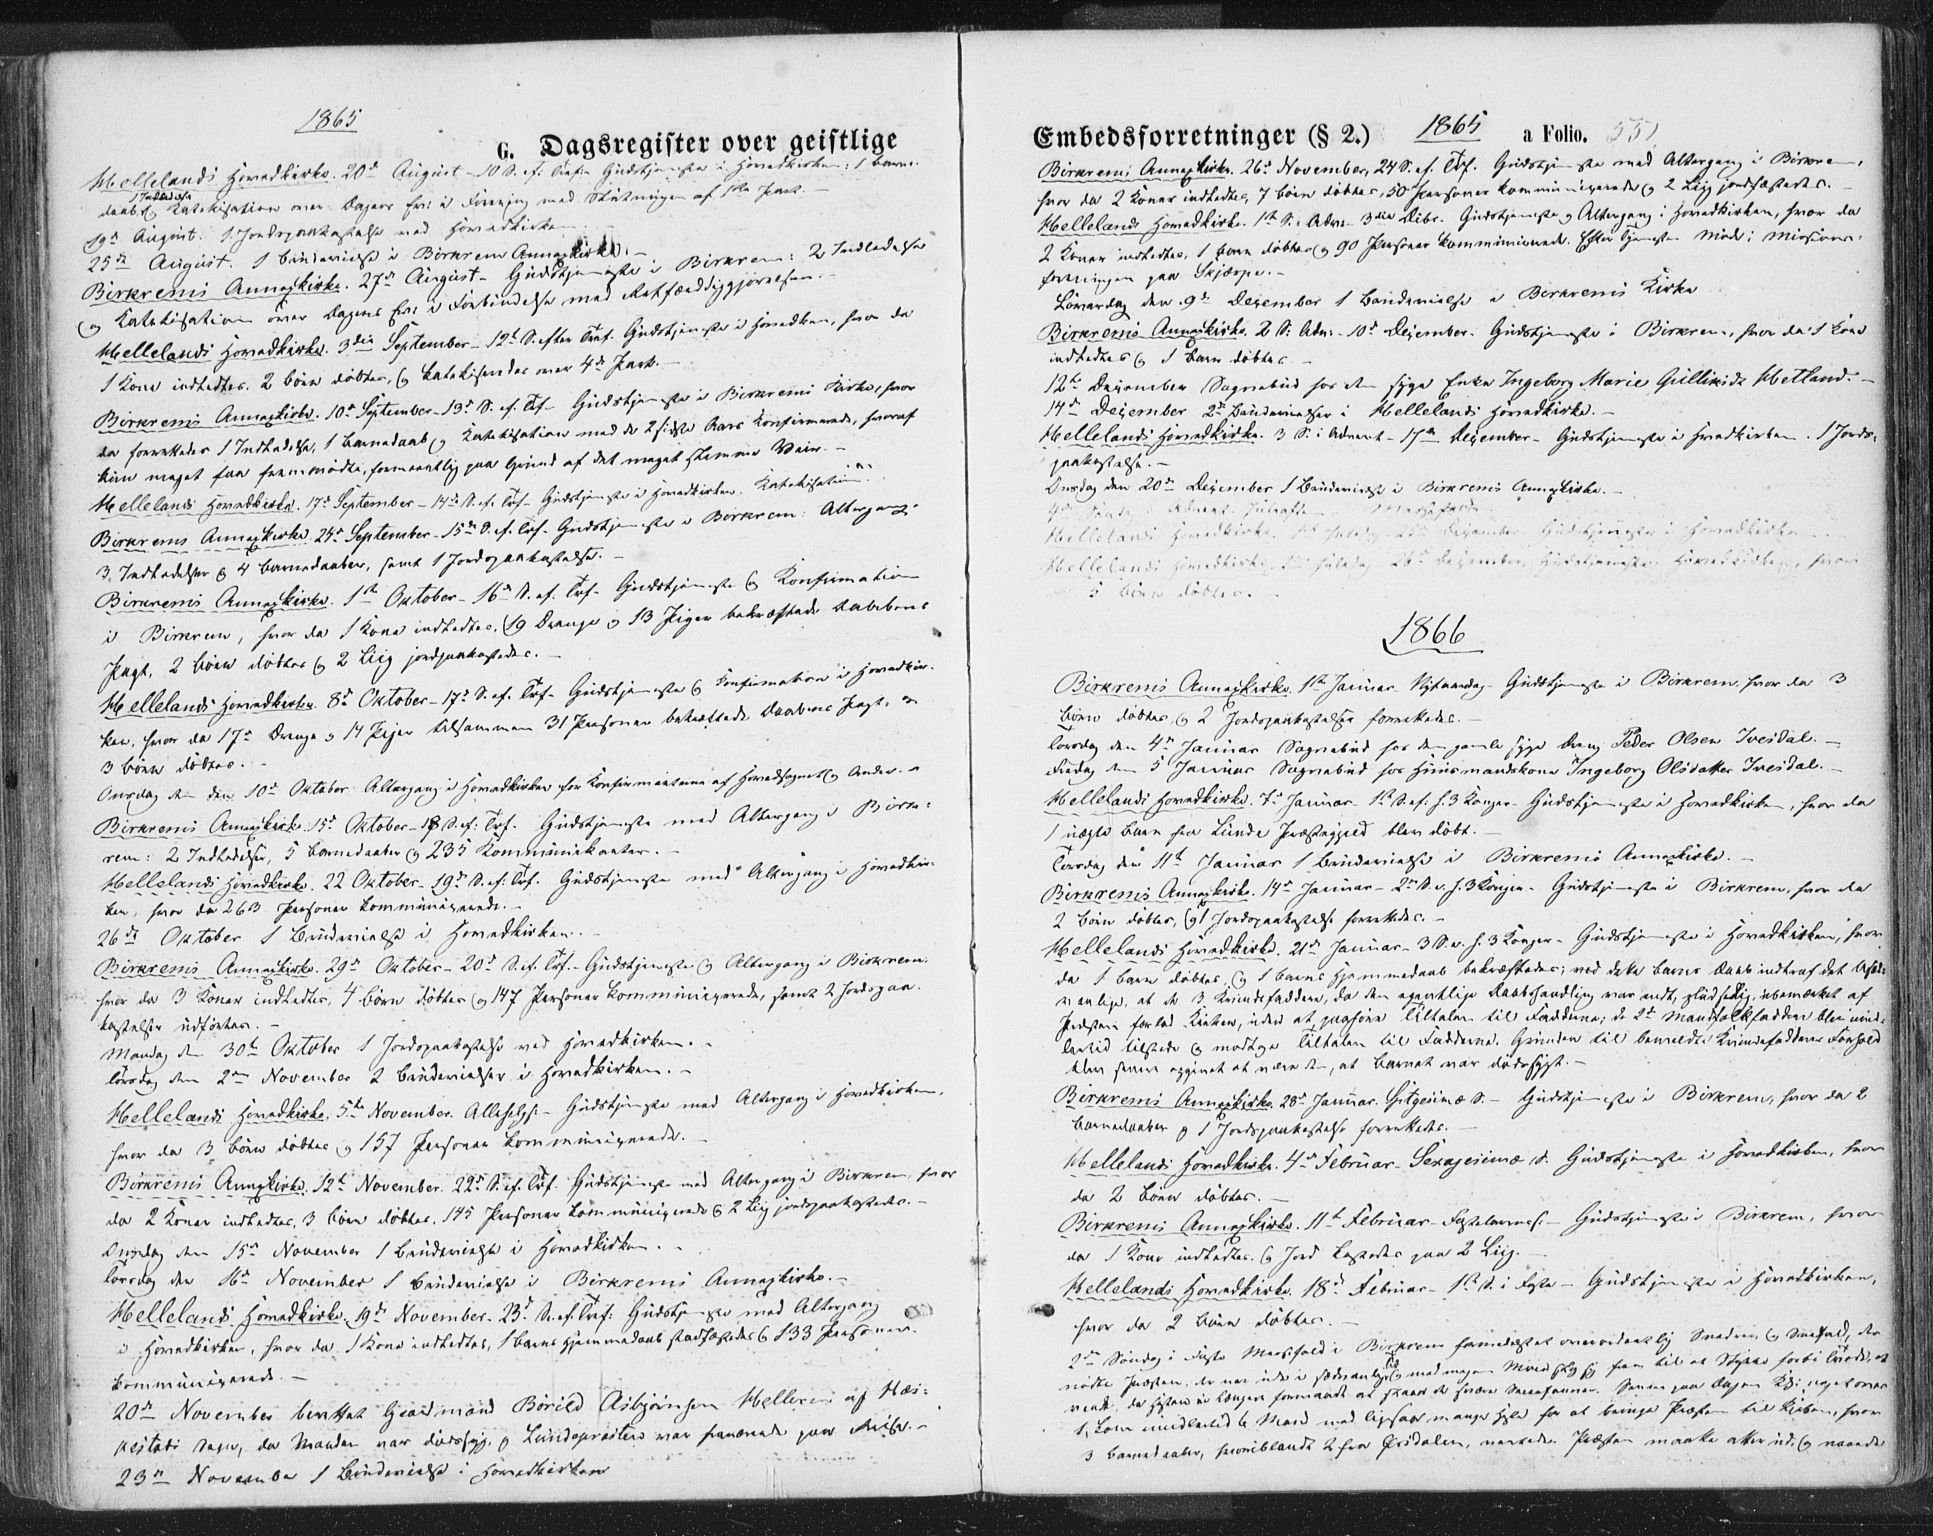 1865
G. Dagsregister over geistlige
Hellelands Hovedkirke. 20de August – 10 S. ef. Tref. Gudstjeneste i Hovedkirken: 1 Barne-
daab, 1 Indledelse og Katekisation over Dagens Ev: i Forening med Slutningen af 1ste Part. –
19de August. 1 Jordspaakastelse ved Hovedkirken
25de August. 1 Brudevielse i Birkrem Annexkirke. –
Birkrems Annexkirke. 27de August – Gudstjeneste i Birkrem: 2 Indledelser
og Katekisation over Dagens Ev: i Forbindelse med Retfærdiggjørelsen. –
Hellelands Hovedkirke. 3die September – 12te S. efter Tref. Gudstjeneste i Hovedkirken, hvor da
1 Kone indledtes, 2 Børn døbtes, og katekiseredes over 4de Part. –
Birkrems Annexkirke. 10de September – 13de S. ef. Tref. – Gudstjeneste i Birkrems Kirke, hvor
da forrettedes 1 Indledelse, 1 Barnedaab og Katekisation med de 2 sidste Aars Konfirmerede, hvoraf
kun meget faa fremmødte, formeentlig paa Grund af det meget slemme Veir. –
Hellelands Hovedkirke. 17de September – 14de S. ef. Tref. – Gudstjeneste i Hovedkirken. Katekisation.
Birkrems Annexkirke. 24de September – 15de S. ef. Tref. – Gudstjeneste i Birkrem: Altergang:
3 Indledelser og 4 Barnedaaber, samt 1 Jordspaakastelse. –
Birkrems Annexkirke. 1ste Oktober – 16de S. ef. Tref. – Gudstjeneste og Konfirmation
i Birkrem, hvor da 1 Kone indledtes, 19 Drenge og 13 Piger bekræftede Daabens
Pagt, 2 Børn døbtes og 2 Liig jordpaakastedes. –
Hellelands Hovedkirke. 8de Oktober – 17de S. ef. Tref. – Gudstjeneste og Konfirmation i Hovedkir-
ken, hvor da 17 Drenge og 14 Piger tilsammen 31 Personer bekræftede Daabens Pagt, og
3 Børn døbtes. –
Onsdag den 10de Oktober Altergang i Hovedkirken for Konfirmanterne af Hovedsognet og Andre. –
Birkrems Annexkirke 15de Oktober – 18 S. ef. Tref. Gudstjeneste med Altergang i Birk-
rem: 2 Indledelser, 5 Barnedaaber og 235 Kommunikanter. –
Hellelands Hovedkirke. 22 Oktober – 19de S. ef. Tref. Gudstjeneste med Altergang i Hovedkir-
ken, hvor da 263 Personer kommunicerede. –
26de Oktober 1 Brudevielse i Hovedkirken. –
Birkrems Annexkirke. 29de Oktober – 20de S. ef. Tref. – Gudstjeneste og Altergang i Birkrem,
hvor da 3 Koner indledtes, 4 Børn døbtes og 147 Personer kommunicerede, samt 2 Jordspaa-
kastelser udførtes. –
Mandag den 30te Oktober 1 Jordspaakastelse ved Hovedkirken. –
Torsdag den 2den November 2 Brudevielser i Hovedkirken. –
Hellelands Hovedkirke. 5te November. Allehelgs. – Gudstjeneste med Altergang i Hovedkirken,
hvor da 3 Børn døbtes og 157 Personer kommunicerede. –
Birkrems Annexkirke. 12te November. 22de S. ef. Tref. Gudstjeneste med Altergang i Birkrem, hvor
da 2 Koner indledtes, 3 Børn døbtes, 145 Personer kommunicerede og 2 Liig jordspaakastedes. –
Onsdag den 15de November 1 Brudevielse i Hovedkirken. –
Torsdag den 16de November 1 Brudevielse i Birkrems Annexkirke. –
Hellelands Hovedkirke. 19de November. 23de S. ef. Tref. Gudstjeneste med Altergang
i Hovedkirken, hvor da 1 Kone indledtes, 1 Barns Hjemmedaab stadfæstedes og 133 Personer
kommunicerede. –
20de November berettet Gaardmand Bórild Asbjørnsen Helleren af
Sogn, da Manden var dødssyg og Lundepræsten var fraværende paa Reise. –
23de November 1 Brudevielse i Hovedkirken
Embedsforretninger (§ 2.) 1865 a Folio. 551
Birkrems Annexkirke. 26de November, 24 S. ef. Tref. Gudstjeneste med Altergang i Birkrem,
hvor da 2 Koner indledtes, 7 Børn døbtes, 50 Personer kommunicerede og 2 Liig jordfæstedes. –
Hellelands Hovedkirke. 1ste S. i Adv. – 3die Decbr. Gudstjeneste og Altergang i Hovedkirken, hvor da
2 Koner indledtes, 1 Barn døbtes og 90 Personer kommunicerede. Efter Tjenesten Møde i Missions-
foreningen paa Skjærpe. –
Løverdag den 9de Dezember 1 Brudevielse i Birkrems Kirke
Birkrems Annexkirke. 2 S. Adv. – 10de Dezember. Gudstjeneste i Birkrem, hvor da 1 Kone
indledtes og 1 Barn døbtes. –
12te Dezember Sognebud hos den syge Enke Ingeborg Marie Gulliksdr Hetland. –
14de Dezember 2de Brudevielser i Hellelands Hovedkirke. –
Hellelands Hovedkirke. 3 S. i Advent – 17de Dezember – Gudstjeneste i Hovedkirken. 1 Jords-
paakastelse. –
Onsdag den 20de Dezember 1 Brudevielse i Birkrems Annexkirke. –
4de Søndag Advent Juleaften Messefald
Hellelands Hovedkirke. 1ste Juledag 25de Dezember Gudstjeneste i Hovedkirken
Hellelands Hovedkirke. 2den Juledag 26de Dezember, Gudstjeneste i Hovedkirken, hvor
5 Børn døbtes. –
1866
Birkrems Annexkirke. 1ste Januar Nytaarsdag – Gudstjeneste i Birkrem, hvor da 3
Børn døbtes, og 2 Jordspaakastelser forrettedes. –
Torsdag den 4de Januar Sognebud hos den gamle syge Dreng Peder Olsen Ivesdal. –
Fredag den 5 Januar Sognebud hos Huusmandskone Ingeborg Olsdatter Ivesdal. –
Hellelands Hovedkirke. 7de Januar – 1ste S. ef. H. 3 Konger – Gudstjeneste i Hovedkirken, hvor da
1 uægte Barn fra Lunde Præstegjeld blev døbt. –
Torsdag den 11te Januar 1 Brudevielse i Birkrems Annexkirke. –
Birkrems Annexkirke. 14de Januar – 2den S. e. H. 3 Konger – Gudstjeneste i Birkrem, hvor da
2 Børn døbtes, og 1 Jordspaakastelse forrettedes. –
Hellelands Hovedkirke. 21de Januar – 3 S. e. H. 3 Konger – Gudstjeneste i Hovedkirken, hvor
da 1 Barn døbtes, og 1 Barns Hjemmedaab bekræftedes; ved dette Barns Daab indtraf det Usæd-
vanlige, at de 3 Kvindefaddere, da den egentlige Daabshandling var endt, pludselig, ubemærket af
Præsten forlod Kirken, uden at paahøre Tiltalen til Fadderne; de 2de Mandfolkfaddere blev imid-
lertid tilstede og modtog Tiltalen til Fadderne. Grunden til bemeldte Kvindefadderes Forhold
blev senere opgivet at være den, at Barnet var dødssygt. –
Birkrems Annexkirke. 28de Januar. Septuagesimæ S. – Gudstjeneste i Birkrem, hvor da 2
Barnedaaber og 1 Jordspaakastelse forrettedes. –
Hellelands Hovedkirke. 4de Februar – Sexagesimæ S. Gudstjeneste i Hovedkirken, hvor
da 2 Børn døbtes. –
Birkrems Annexkirke. 11te Februar – Fastelavns S. – Gudstjeneste i Birkrem, hvor
da 1 Kone indledtes og Jord kastedes paa 2 Liig. –
Hellelands Hovedkirke. 18de Februar – 1ste S. i Faste – Gudstjeneste i Hovedkirken,
hvor da 2 Børn døbtes. –
2den Søndag i Faste Messefald i Birkrem formedelst overordentlig Snedrev og Snefald, der
nødte Præsten, der var ude i sædvanlig Tid og med megen Møie frem til et Stykke forbi
vende, da Hesten ei længer formaaede at
1 Kone imidlertid og Mand med ligesaa mange Heste for at bringe Præsten til Kirken, hvor
3 Barnedaaber, hvoriblandt 2 fra Ørsdalen, ventede. Præsten maatte atter ud, og naaede